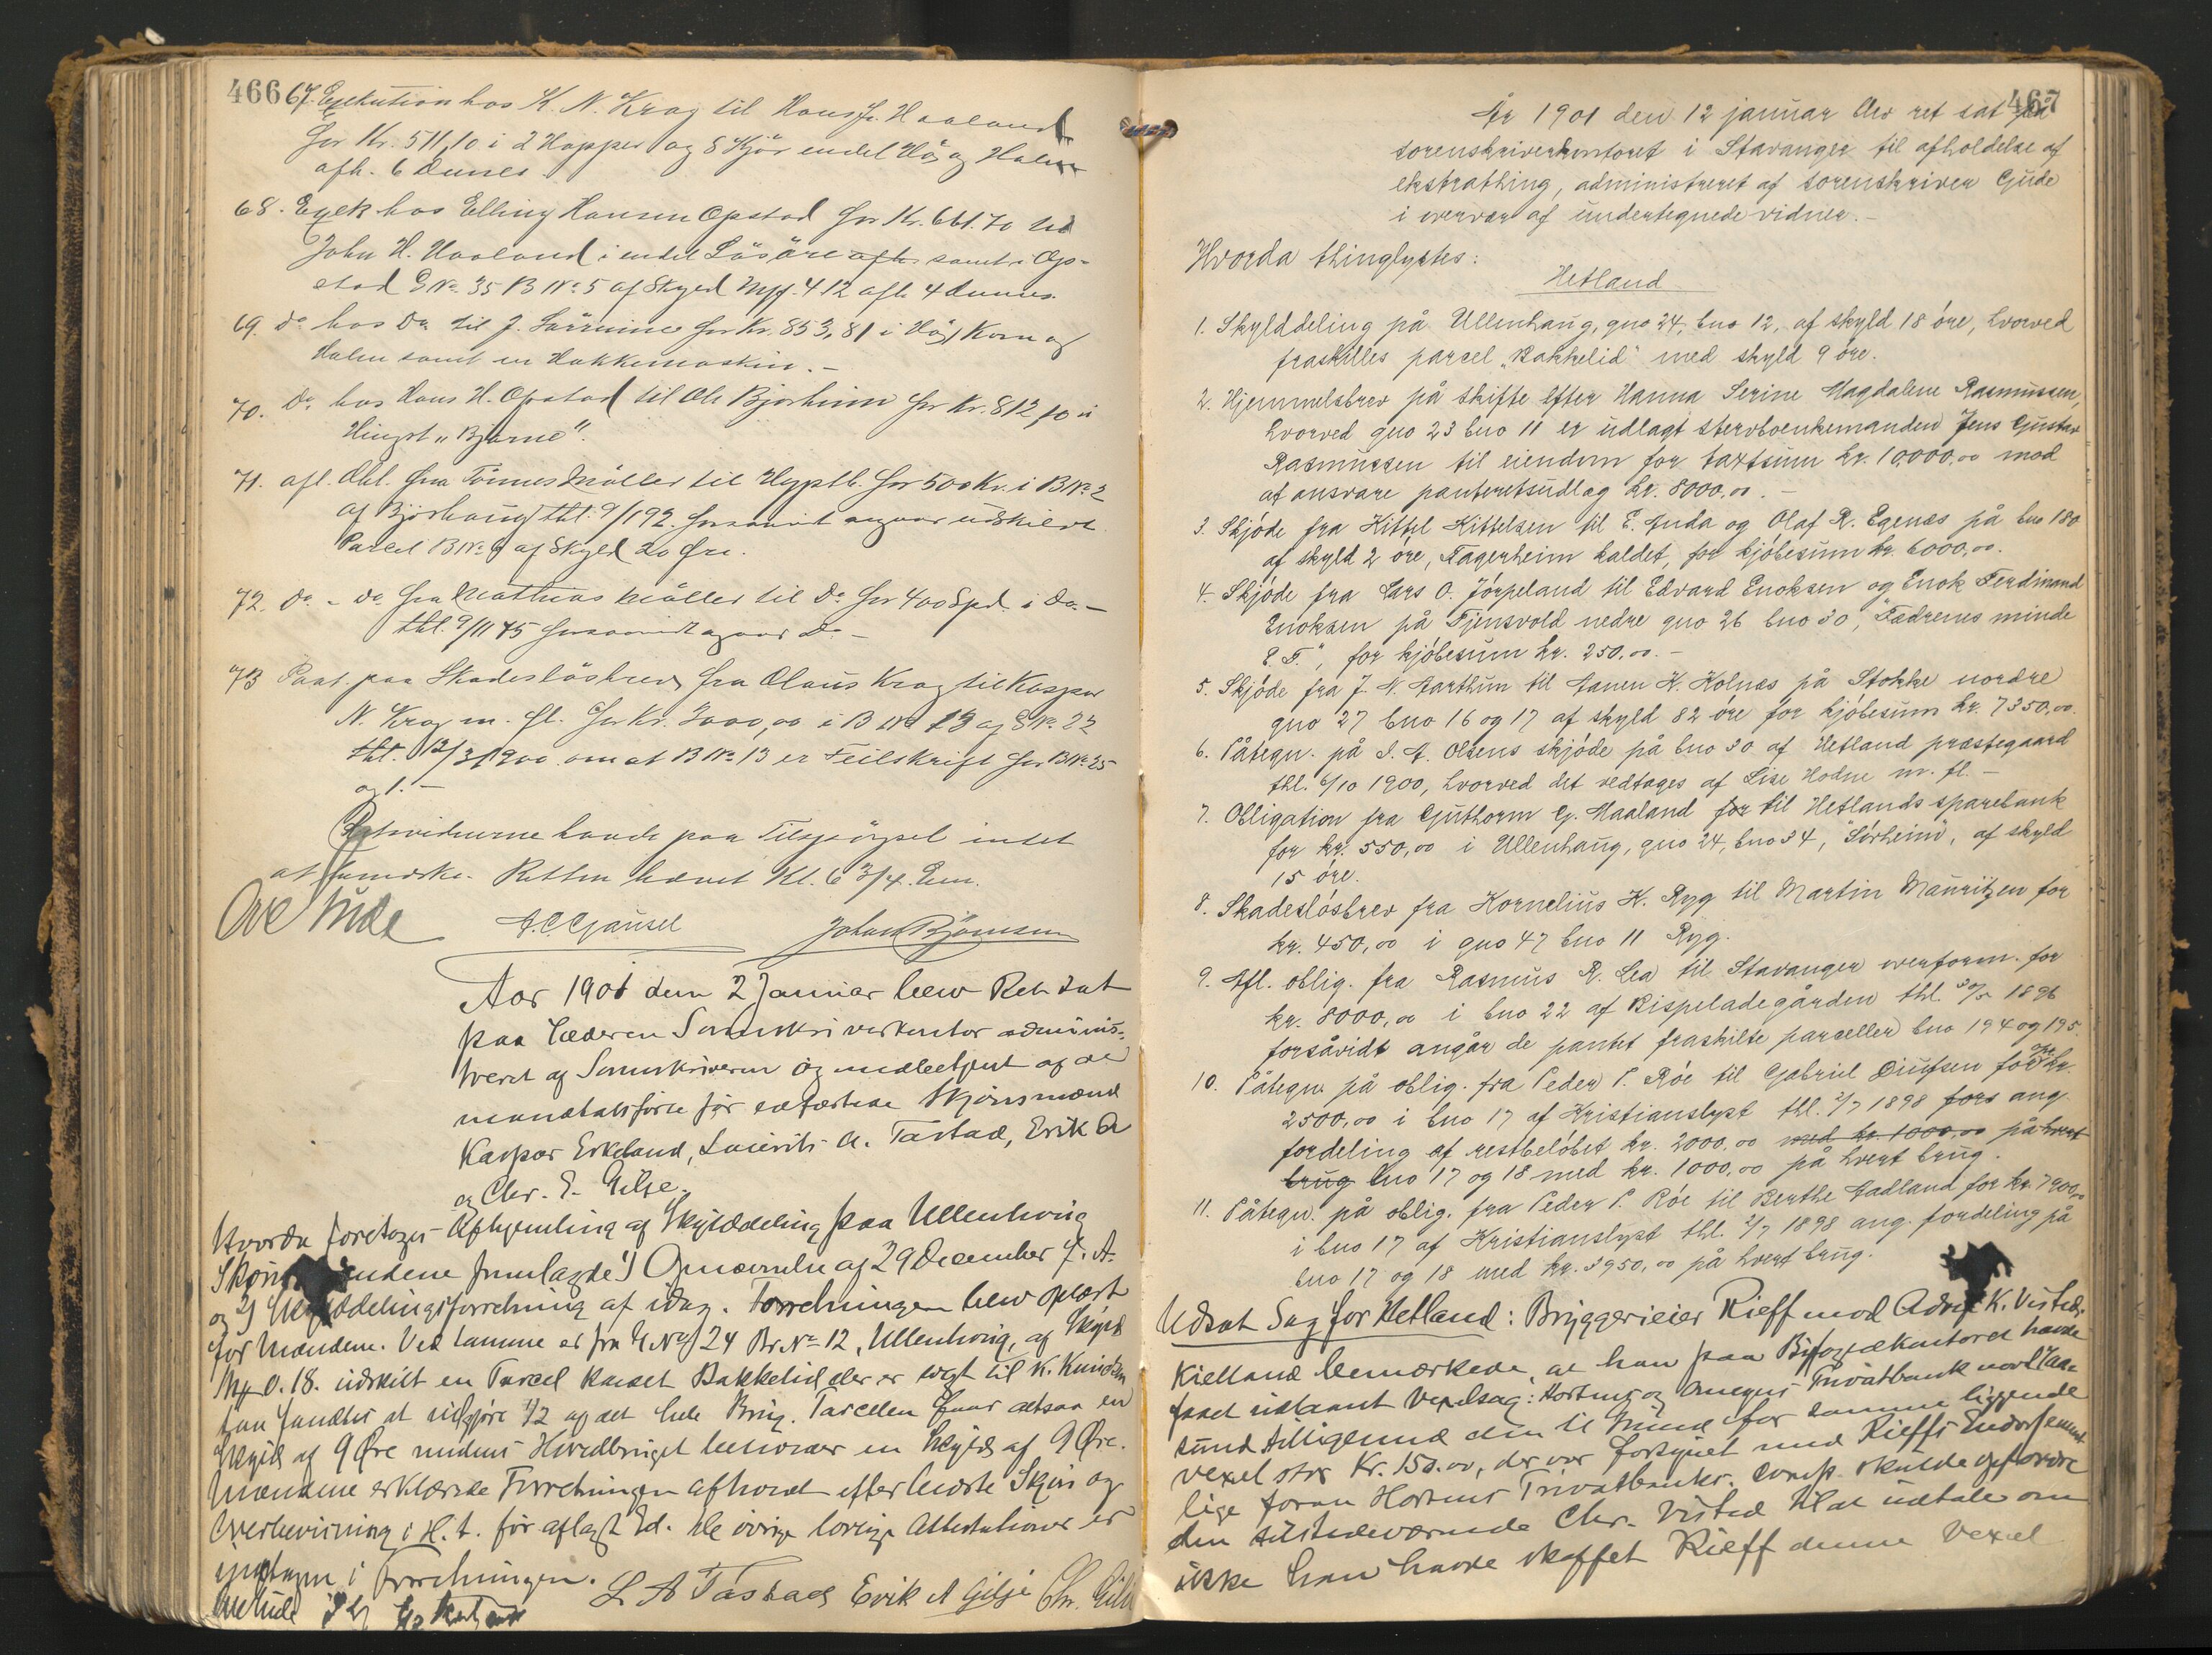 466
67. Exekution hos K. N. Krag til Hans Jr. Haaland
for Kr. 511,10 i 2 Hopper og 8 Kjør endel Hø og Halm
afh. 6 dennes.
68. Exek hos Elling Hansen Opstad for Kr. 661.70 til
John H. Haaland i endel Løsøre afh. samt i Op-
stad GNo. 35 BNo. 5 af Skyld Mk. 4.12 afh 4 dennes.
69. do hos Do til J. for Kr. 853,81 i Hø, Korn og
Halm samt en Hakkemaskin.-
70. do hos Hans H. Opstad til Ole Bjorheim for Kr. 812,50 i
Hingst "Bjarne".
71. afl. Obl. fra Tönnes Möller til Hypthb. for 500 Kr. i BNo 2
af Bjørhaug thl. 9/1 92 forsaavidt angaar udskilt
Parcel BNo 9 af Skyld 20 Øre.
72. do - do fra Mathias Möller til Do for 400 Spd. i Do -
thl. 9/11 75 forsaavidt angaar do -
73 Paat. paa Skadesløsbrev fra Claus Krag til Kaspar
N. Krag m. fl. for Kr. 3000,00 i BNo 13 af GNo. 22
thl. 12/3 1900 om at BNo. 13 er Feilskrift for BNo. 25
og 1.-
Retsvidnerne havde paa Tilspørgsel intet
at bemærke. Retten hævet Kl. 6 3/4 Em.
Ove Gude A. C. Gausel Johan Bjørnsen
Aar 1901 den 2 Januar blev Ret sat
paa Jæderen Sorenskriverkontor adminis-
treret af Sorenskriveren og medbetjent af de
mandtalsførte før edfæstede Skjønsmænd
Kaspar Eskeland, Laurits A. Tastad, Erik A
og Chr. E. Gilje.
Hvorda foretoges Afhjemling af Skylddeling paa Ullenhoug
Skjønsmændene fremlagde 1) Opnævnelse af 29 December f. A.
og 2) Skylddelingsforretning af idag. Forretningen blev oplæst
for Mændene. Ved samme er fra G.No. 24 Br.No 12, Ullenhoug, af Skyld
Mk 0.18. udskilt en Parcel kaldet Bakkelid der er solgt til K. Knudsen
han fandtes at udgjøre 1/2 af det hele Brug. Parcellen faar altsaa en
Skyld af 9 Øre medens Hovedbruget beholder en Skyld af 9 Øre.
Mændene erklærede Forretningen afholdt efter bedste Skjøn og
Overbevisning i H. t. før aflagt Ed. De øvrige lovlige Attestationer er
indtagen i Forretningen.
Ove Gude L A Tastad Erik A Gilje Chr. Gilje
467
År 1901 den 12 januar blev ret sat på
sorenskriverkontoret i Stavanger til afholdelse af
ekstrathing, administreret af sorenskriver Gude
i overvær af undertegnede vidner.-
Hvorda thinglystes:
Hetland
1. Skylddeling på Ullenhaug, gno 24, bno 12, af skyld 18 øre, hvorved
fraskilles parcel "Bakkelid" med skyld 9 øre.
2. Hjemmelsbrev på skifte efter Hanna Serine Magdalene Rasmussen,
hvorved gno 23 bno 11 er udlagt stervboenkemanden Jens Gustav
Rasmussen til eiendom for taxtsum kr. 10,000,00 mod
at ansvare panteretsudlæg kr. 8000,00.-
3. Skjøde fra Kittel Kittelsen til E. Auda og Olaf R. Egenæs på bno 180
af skyld 2 øre, Fagerheim kaldet, for kjøbesum kr. 6000,00.
4. Skjøde fra Lars O. Jørpeland til Edvard Enoksen og Enok Ferdinand
Enoksen på Tjensvold nedre gno 26 bno 30, "Fædrenes minde
E. F.", for kjøbesum kr. 250,00.-
5. Skjøde fra J. N. Aarthun til Aanen K. Kolnæs på Stokke nordre
gno 27 bno 16 og 17 af skyld 82 øre for kjøbesum kr. 7350,00.
6. Påtegn. på I. A. Olsens skjøde på bno 30 af Hetland præstegaard
thl. 6/10 1900, hvorved det vedtages af Lise Hodne m. fl.-
7. Obligation fra Guthorm G. Haaland for til Hetlands sparebank
for kr. 550,00 i Ullenhaug, gno 24, bno 34, "Sørheim", af skyld
15 øre.
8. Skadesløsbrev fra Kornelius K. Ryg til Martin Mauritzen for
kr. 450,00 i gno 47 bno 11 Ryg.
9. Afl. oblig. fra Rasmus R. Lea til Stavanger overform. for
kr. 8000,00 i bno 22 af Bispeladegården thl. 30/5 1896
forsåvidt angår de pantet fraskilte parceller bno 194 og 195
10. Påtegn. på oblig. fra Peder P. Róe til Gabriel Diufsen for opr. kr.
2500,00 i bno 17 af Kristianslyst thl. 2/7 1898 fors ang.
fordeling af restbeløbet kr. 2000,00 med kr. 1000,00 på hvert
brug bno 17 og 18 med kr. 1000,00 på hvert brug.
11. Påtegn. på oblig. fra Peder P. Róe til Berthe Aadland for kr. 7900,00
i bno 17 af Kristianslyst thl. 2/7 1898 ang. fordeling på
bno 17 og 18 med kr. 3950,00 på hvert brug.
Udsat Sag for Hetland: Bryggerieier Rieff mod Adolf K. Visted.
Kielland bemærkede, at han paa Byfogedkontoret havde
faaet udlaant Vexelsag: Hortens og Omegns Privatbank mod Taa-
sund tilligemed den til Grund for samme liggende
Vexel stor Kr. 150.00, der var forsynet med Rieffs Endossement
lige foran Hortens Privatbanks. Comp. skulde opfordre
den tilstedeværende Chr. Visted til at udtale om
ikke han havde skaffet Rieff denne Vexel